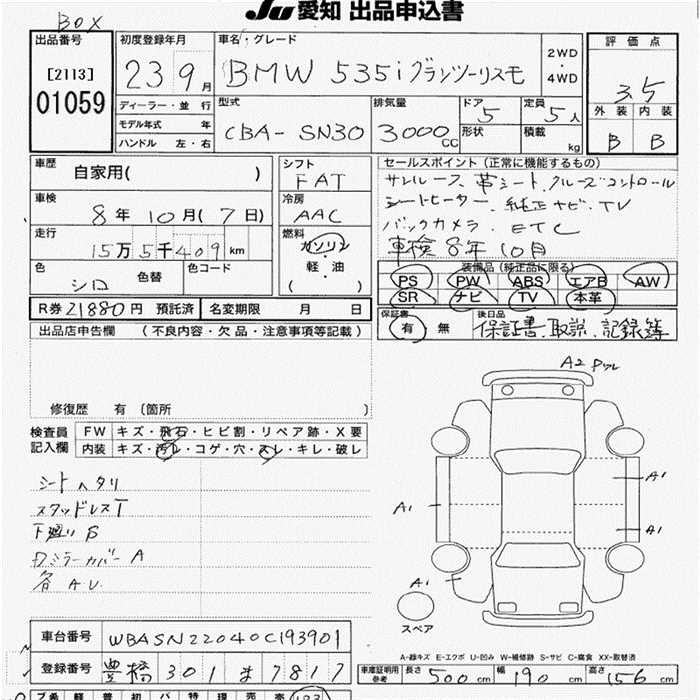 BOX
JU 愛知 出品申込書
出品番号
[2113]
01059
初度登録年月
23 9月
ディーラー・並行
モデル年式 年
ハンドル 左・右
車名・グレード
BMW 535iグランツーリスモ
2WD
・
4WD
型式
CBA-SN30
排気量
3000CC
ドア
5
形状
定員
5人
積載
kg
評価点
3.5
外装 内装
B B
車歴
自家用( )
車検
8年10月(7日)
走行
15万5千409km
色
シロ
色替
色コード
シフト
FAT
冷房
AAC
燃料
ガソリン
軽・油
( )
セールスポイント(正常に機能するもの)
サンルーフ、革シート、クルーズコントロール
シートヒーター、純正ナビ、TV
バックカメラ、ETC
車検8年10月
装備品(純正品に限る)
PS PW ABS エアB AW
SR ナビ TV 本革
R券 21880円 預託済
名変期限 月 日
保証書
有 無
後日品
保証書、取説、記録簿
出品店申告欄 (不良内容・欠品・注意事項等記載)
修復歴 有 (箇所 )
検査員
記入欄
FW キズ・飛石・ヒビ割・リペア跡・X要
内装 キズ・汚レ・コゲ・穴・スレ・キレ・破レ
シートヘタリ
スタッドレスT
下廻りS
ワミラーカバーA
各AU
A2
A1
A1
A1
A1
スペア
A-線キズ E-エクボ U-凹み W-補修跡 S-サビ C-腐食 XX-取替済
車台番号
WBASN22040C193901
登録番号
豊橋 301 ま 7817
車庫証明用
参考
長さ 500cm
幅 190cm
高さ 156cm